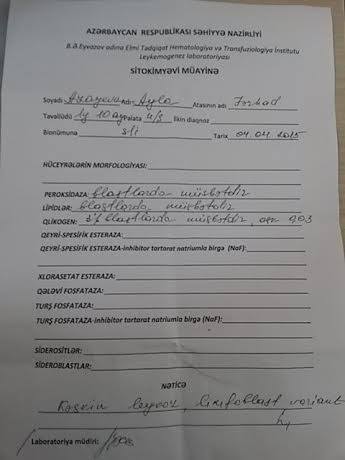 AZƏRBAYCAN RESPUBLİKASI SƏHİYYƏ NAZİRLİYİ
B.Ə.Eyvazov adına Elmi Tədqiqat Hematologiya və Transfuziologiya İnstitutu
Leykemogenez laboratoriyası
SİTOKİMYƏVİ MÜAYİNƏ
Soyadı Adı Ayla Atasının adı Fərhad
Təvəllüdü 1y 10 ay Palata 4/3 İlkin diaqnoz
Bionümunə s/i Tarix 04.04.2015
HÜCEYRƏLƏRİN MORFOLOGİYASI:
PEROKSİDAZA: blastlarda müsbətdir
LİPİDLƏR: blastlarda müsbətdir
QLİKOGEN: blastlarda müsbətdir, 0,03
QEYRİ-SPESİFİK ESTERAZA:
QEYRİ-SPESİFİK ESTERAZA-inhibitor tartarat natriumla birgə (NaF):
XLORASETAT ESTERAZA:
QƏLƏVİ FOSFATAZA:
TURŞ FOSFATAZA:
TURŞ FOSFATAZA-inhibitor tartarat natriumla birgə (NaF):
SİDEROSİTLƏR:
SİDEROBLASTLAR:
NƏTİCƏ
Kəskin leykoz, limfoblast variant
Laboratoriya müdiri: